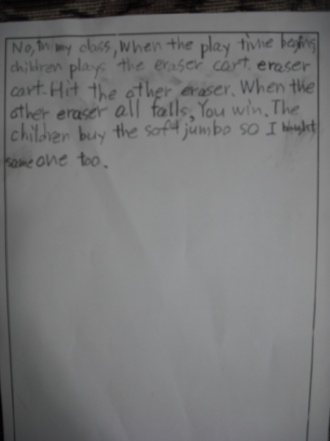 No, In my class, When the play time begins,
children plays the eraser cart. eraser
cart. Hit the other eraser. When the
other eraser all falls, You win. The
children buy the soft jumbo so I bought
some one too.